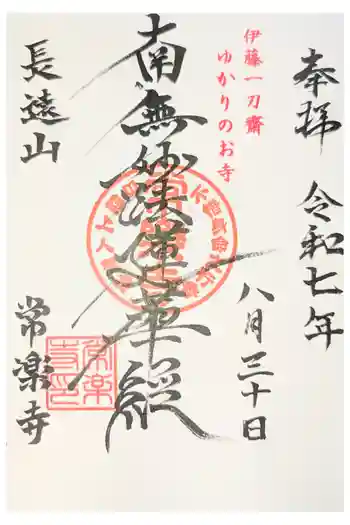 奉拝 令和七年
八月三十日
伊藤一刀齋
ゆかりのお寺
南無妙法蓮華経
長遠山
常楽寺